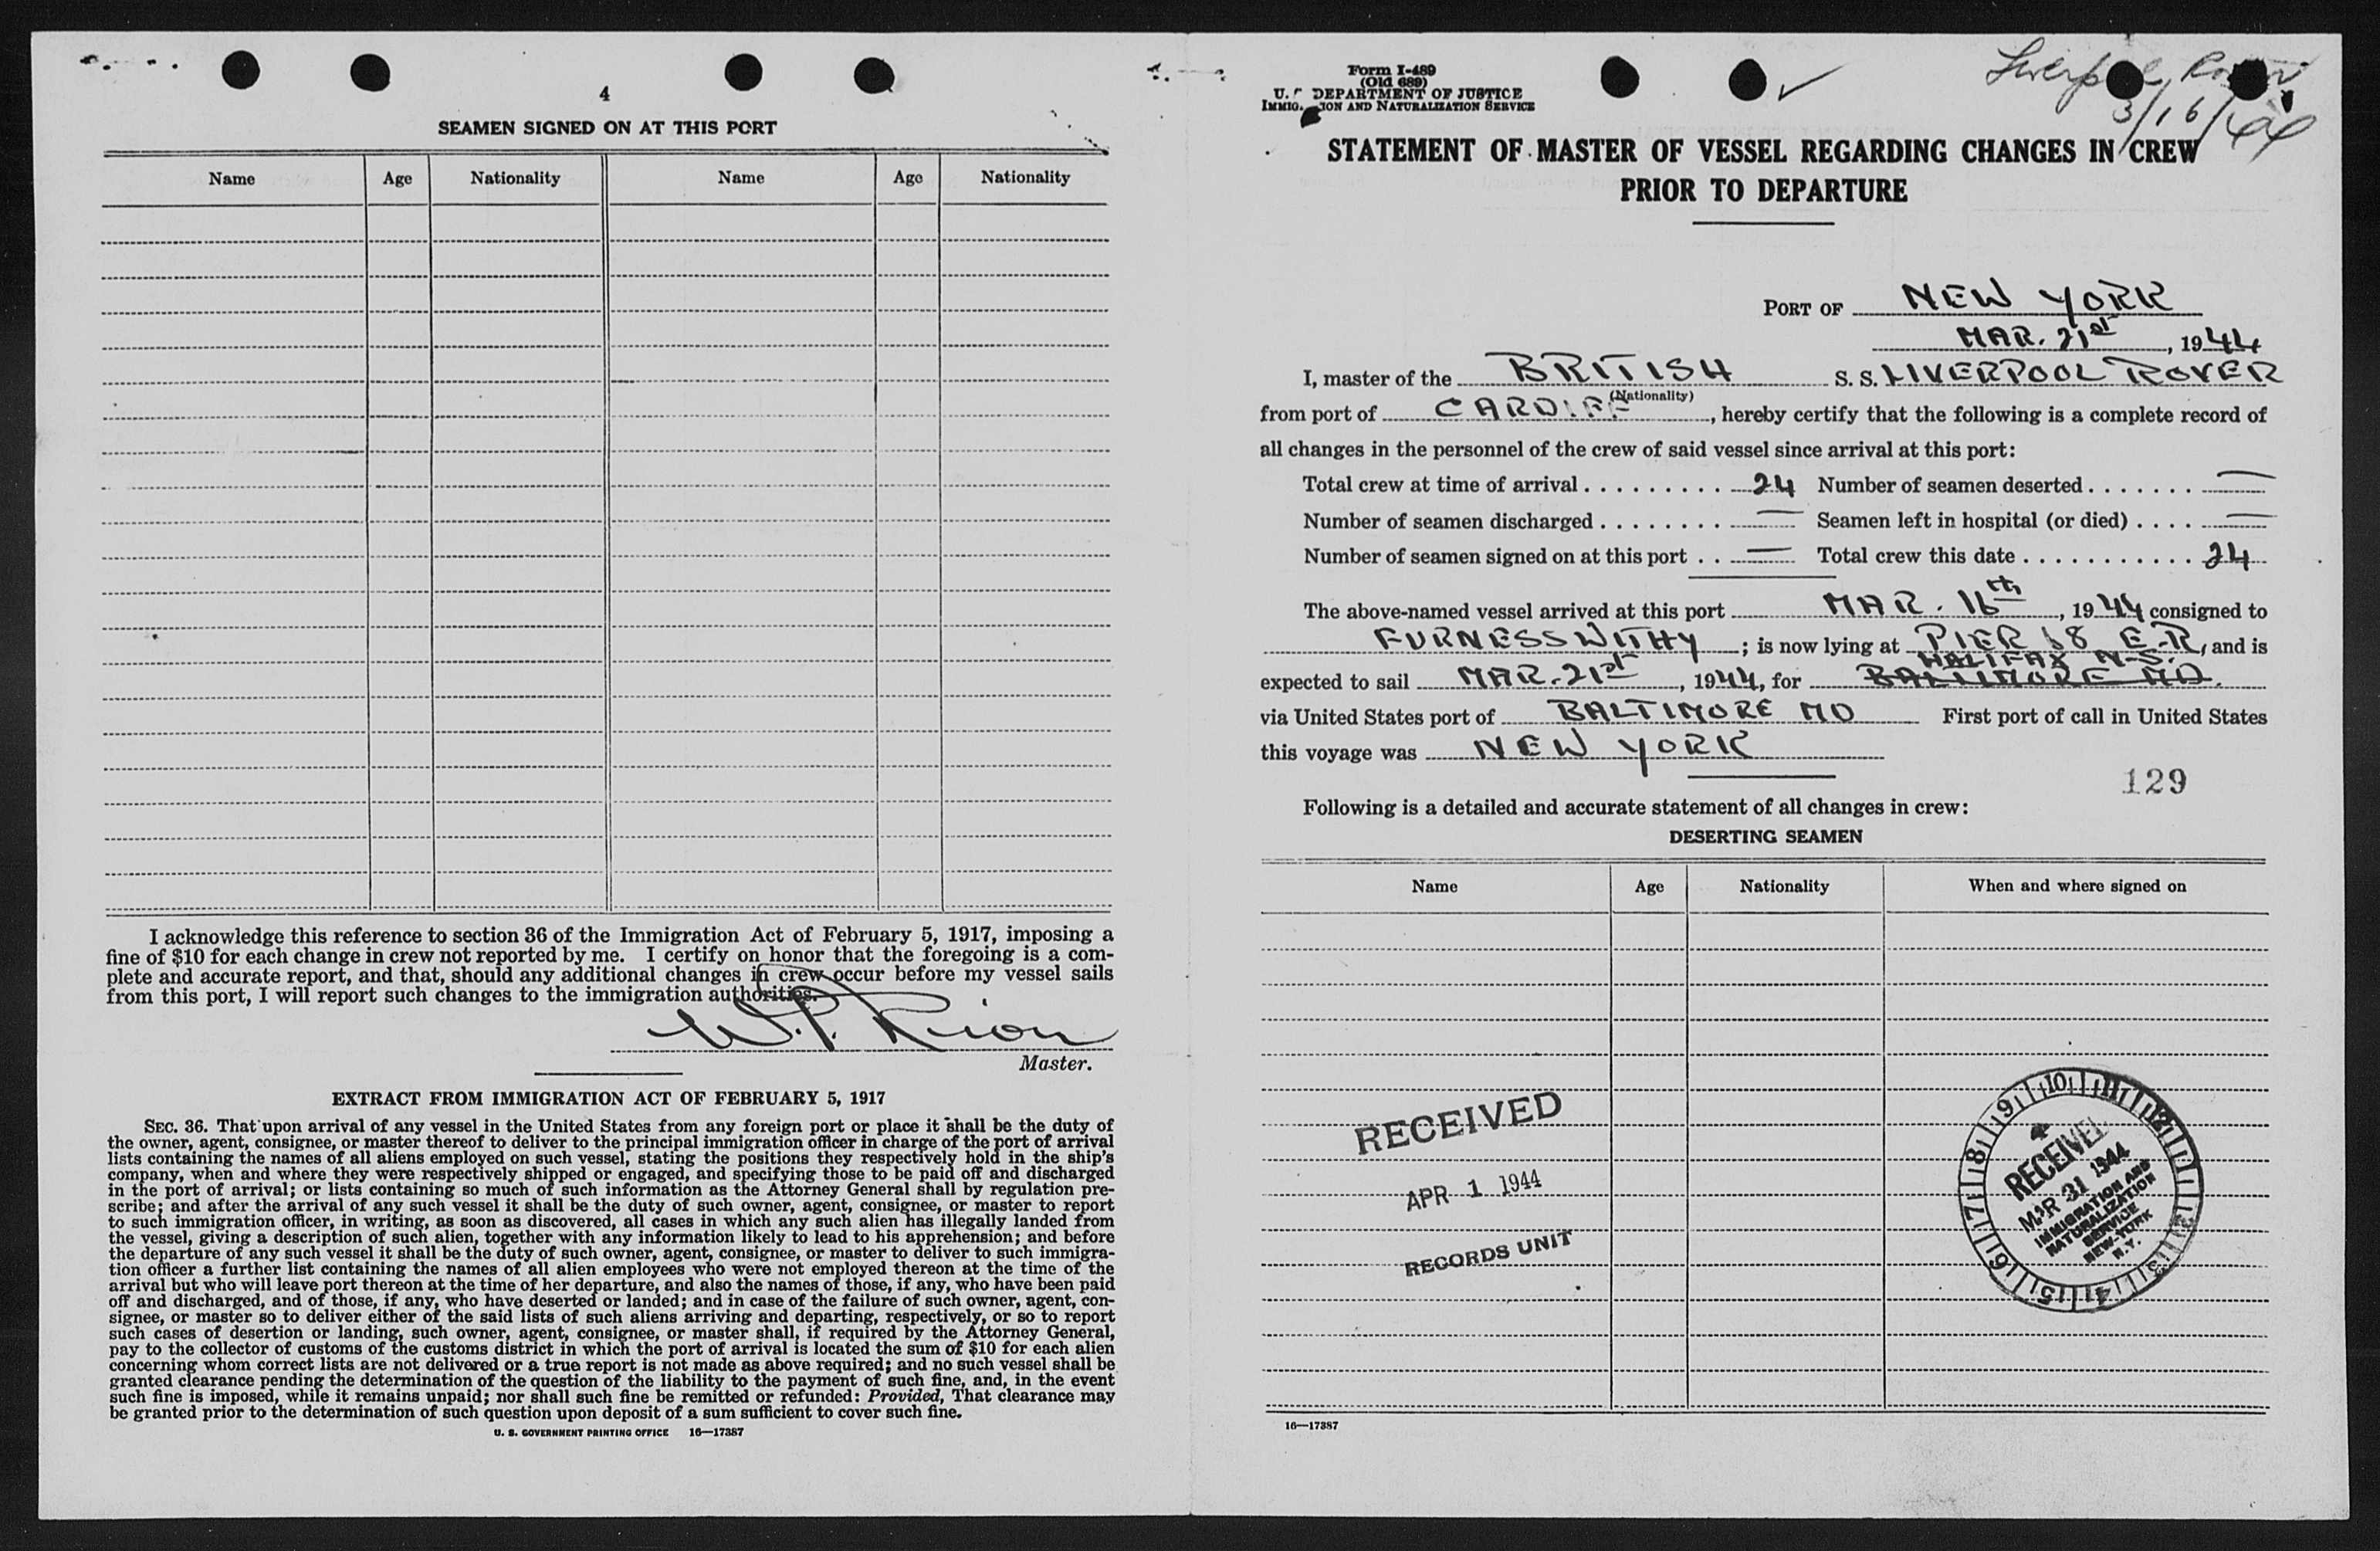 4
SEAMEN SIGNED ON AT THIS PORT
Name Age Nationality Name Age Nationality
I acknowledge this reference to section 36 of the Immigration Act of February 5, 1917, imposing a
fine of $10 for each change in crew not reported by me. I certify on honor that the foregoing is a com-
plete and accurate report, and that, should any additional changes in crew occur before my vessel sails
from this port, I will report such changes to the immigration authorities.
Master.
EXTRACT FROM IMMIGRATION ACT OF FEBRUARY 5, 1917
SEC. 36. That upon arrival of any vessel in the United States from any foreign port or place it shall be the duty of
the owner, agent, consignee, or master thereof to deliver to the principal immigration officer in charge of the port of arrival
lists containing the names of all aliens employed on such vessel, stating the positions they respectively hold in the ship's
company, when and where they were respectively shipped or engaged, and specifying those to be paid off and discharged
in the port of arrival; or lists containing so much of such information as the Attorney General shall by regulation pre-
scribe; and after the arrival of any such vessel it shall be the duty of such owner, agent, consignee, or master to report
to such immigration officer, in writing, as soon as discovered, all cases in which any such alien has illegally landed from
the vessel, giving a description of such alien, together with any information likely to lead to his apprehension; and before
the departure of any such vessel it shall be the duty of such owner, agent, consignee, or master to deliver to such immigra-
tion officer a further list containing the names of all alien employees who were not employed thereon at the time of the
arrival but who will leave port thereon at the time of her departure, and also the names of those, if any, who have been paid
off and discharged, and of those, if any, who have deserted or landed; and in case of the failure of such owner, agent, con-
signee, or master so to deliver either of the said lists of such aliens arriving and departing, respectively, or so to report
such cases of desertion or landing, such owner, agent, consignee, or master shall, if required by the Attorney General,
pay to the collector of customs of the customs district in which the port of arrival is located the sum of $10 for each alien
concerning whom correct lists are not delivered or a true report is not made as above required; and no such vessel shall be
granted clearance pending the determination of the question of the liability to the payment of such fine, and, in the event
such fine is imposed, while it remains unpaid; nor shall such fine be remitted or refunded: Provided, That clearance may
be granted prior to the determination of such question upon deposit of a sum sufficient to cover such fine.
U. S. GOVERNMENT PRINTING OFFICE 16—17387
Form I-489
(Old 689)
U. S. DEPARTMENT OF JUSTICE
IMMIGRATION AND NATURALIZATION SERVICE
Liverpool Rover
3/16/44
STATEMENT OF MASTER OF VESSEL REGARDING CHANGES IN CREW
PRIOR TO DEPARTURE
PORT OF NEW YORK
MAR. 21st, 1944
I, master of the BRITISH S. S. LIVERPOOL ROVER
(Nationality)
from port of CARDIFF, hereby certify that the following is a complete record of
all changes in the personnel of the crew of said vessel since arrival at this port:
Total crew at time of arrival 24 Number of seamen deserted —
Number of seamen discharged — Seamen left in hospital (or died) —
Number of seamen signed on at this port — Total crew this date 24
The above-named vessel arrived at this port MAR. 16th, 1944 consigned to
FURNESS WITHY; is now lying at PIER 68 E.R, and is
HALIFAX N-S.
expected to sail MAR. 21st, 1944, for BALTIMORE MD.
via United States port of BALTIMORE MD First port of call in United States
this voyage was NEW YORK
129
Following is a detailed and accurate statement of all changes in crew:
DESERTING SEAMEN
Name Age Nationality When and where signed on
RECEIVED
APR 1 1944
RECORDS UNIT
RECEIVED
MAR 31 1944
IMMIGRATION AND
NATURALIZATION
SERVICE
NEW-YORK
N.Y.
16—17387